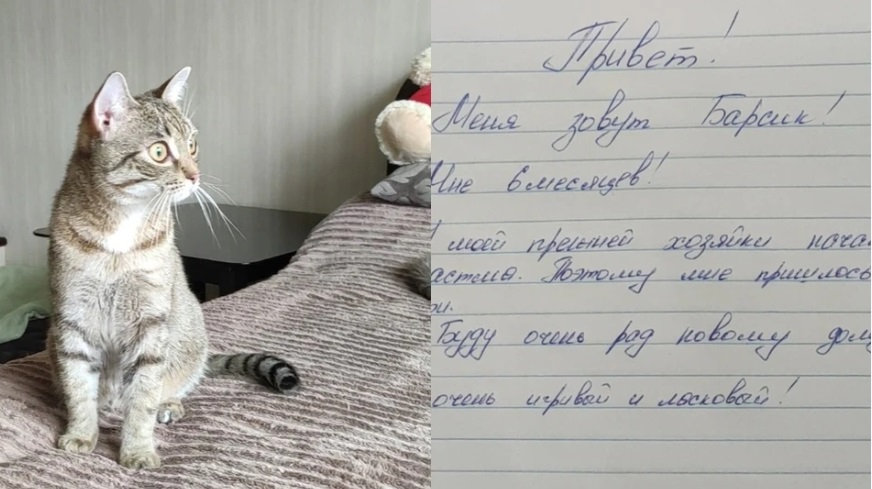 Привет!
Меня зовут Барсик!
Мне 6 месяцев!
моей прежней хозяйки
астма. Поэтому мне пришлось
Буду очень рад новому
очень игривый и ласковый!